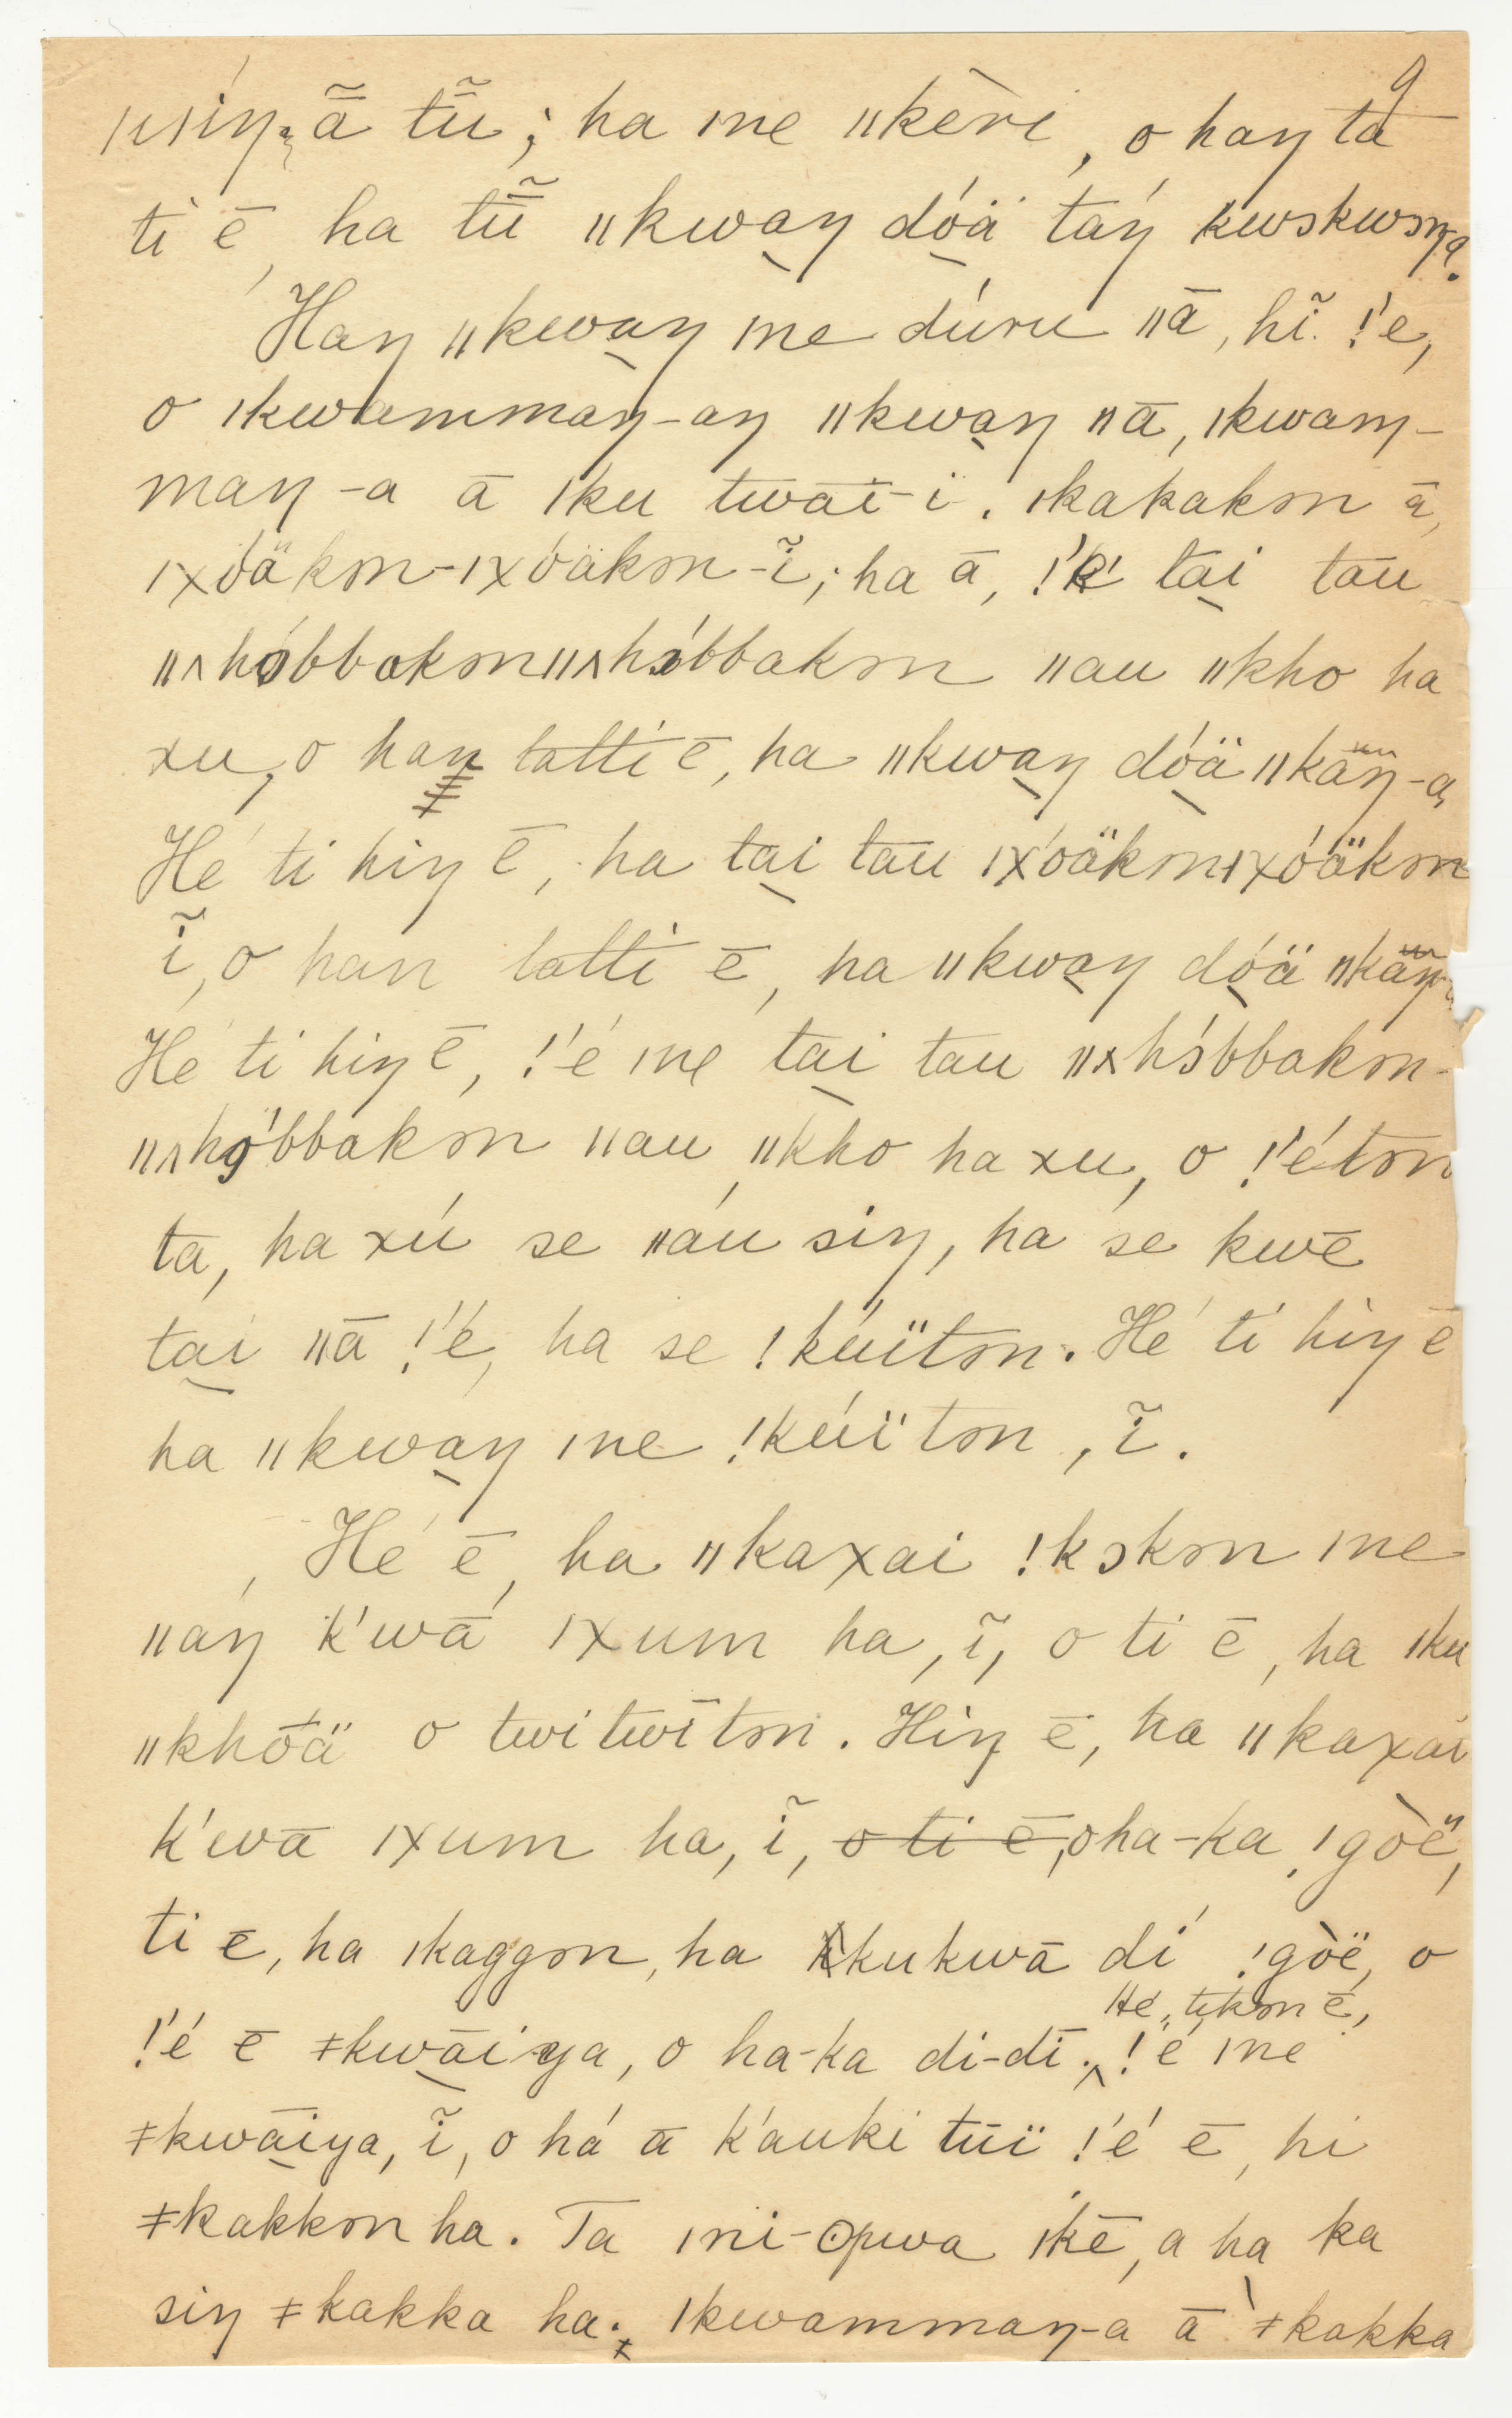 9
ā̃ tū̃; ha ǀne ǁkèri, o haŋ ta
ti ē, ha tū̃ ǁkwa̱ŋ dó̱ä táŋ
Haŋ ǁkwa̱ŋ ǀne dúru ǁā, hĩ ǃ'e,
o ǀkwammaŋ-aŋ ǁkwa̱ŋ ǁā, ǀkwam-
maŋ-a ā ǀku twāī-i. ǀkakakǝn ā,
ǀχóäkǝn-ǀχóäkǝn-ĩ; ha ā, ta̱i tau
ǁʌhɔ́bbakǝnǁʌhɔ́bbakǝn ǁau ǁkho ha
xu, o haŋ tatti ē, ha ǁkwa̱ŋ dó̱ä ǁkä̆ŋ-a,
Hé ti hiŋ ē, ha ta̱i tau ǀχóäkǝnǀχóäkǝn
ĩ, o han tatti ē, ha ǁkwa̱ŋ dó̱ä
Hé ti hiŋ ē, ǃ'é ǀne ta̱i tau ǁʌhɔ́bbakǝn-
ǁʌhɔ́bbakǝn ǁau ǁkho ha xu, o ǃ'étǝn
ta, ha xú se ǁáu siŋ, ha se kwē
ta̱i ǁā ǃ'é, ha se ǃkúïtǝn. Hé ti hiŋ ē
ha ǁkwa̱ŋ ǀne ǃkúïtǝn, ĩ.
Hé ē, ha ǁkaχai ǃkɔkǝn ǀne
ǁáŋ k'wā ǀχum ha, ĩ, o ti ē, ha ǀku
ǁkhṓä o twitwītǝn. Hiŋ ē, ha ǁkaχai
k'wā ǀχum ha, ĩ, o ti ē, o ha-ka ǃgòë,
ti ē, ha ǀkaggǝn, ha kukwā dí ǃgòë, o
Hé tíkǝn ē,
ǃ'é ē ǂkwā̱iya, o ha-ka di-dī. ʌ ǃ'é ǀne
ǂkwā̱iya, ĩ, o há ā k'auki tūï ǃ'é ē, hi
ǂkakkǝn ha. Ta ǀni-ʘpwa ǀkē, a ha̱ ka
siŋ ǂkakka ha. ǀkwammaŋ-a ā ǂkakka